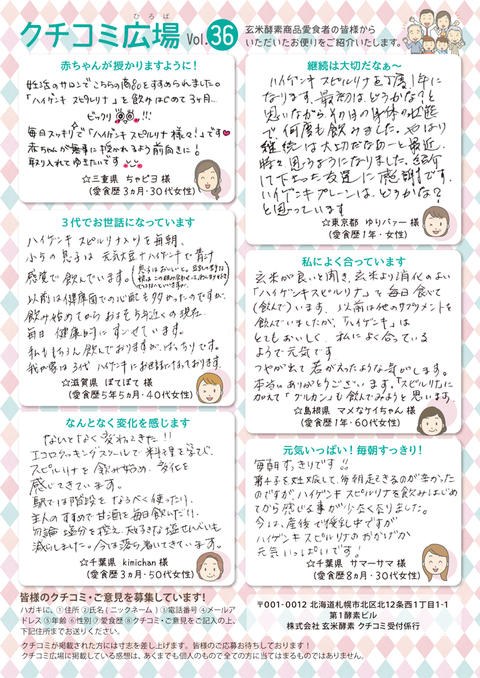 ひろば
クチコミ広場 Vol.36
玄米酵素商品愛食者の皆様から
いただいたお便りをご紹介いたします。
赤ちゃんが授かりますように!
妊活のサロンでこちらの商品をすすめられました。
「ハイゲンキ スピルリナ」を飲みはじめて3ヶ月…
ビックリ !!!
毎日スッキリ「ハイゲンキ スピルリナ 様々!」です
赤ちゃんが無事に授かれるよう前向きに!
取り入れてゆきたいです
☆三重県 ちゃピヨ 様
(愛食歴3ヵ月・30代女性)
3代でお世話になっています
ハイゲンキ スピルリナ入りを毎朝、
小5の息子は 元気大豆とハイゲンキで青汁
感覚で飲んでいます。
以前は健康面での心配も多かったのですが、
飲み始めてから おまもち近くの現在
毎日 健康的に すごせています。
私ももちろん飲んでおりますが、ばっちりです。
我が家は3代 ハイゲンキにお世話になっております
☆滋賀県 ぽてぽて 様
(愛食歴5年5ヵ月・40代女性)
なんとなく変化を感じます
なんとなく変わってきた!!
エコロクッキングスクールで料理を学び、
スピルリナを飲み始め、変化を
感じてきています。
駅では階段をなるべく使ったり、
主人のすすめで甘酒を毎日飲んだり、
勿論塩分を控え、大好きな塩せんべいも
減らしました。今は落ち着いてきています。
☆千葉県 kinichan 様
(愛食歴3ヵ月・50代女性)
継続は大切だなぁ〜
ハイゲンキ スピルリナを丁度1年に
なります。最初は、どうかな?と
思いながら、その日の身体の状態
で、何度も飲みました。やはり
継続は大切だなぁーと最近、
時々思うようになりました。紹介
して下さった友達に感謝です。
ハイゲンキプレーンは、どうかな?
と思っています
☆東京都 ゆりバァー 様
(愛食歴1年・女性)
私によく合っています
玄米が良いと聞き、玄米より消化のよい
「ハイゲンキスピルリナ」を毎日食べて
(飲んで)います。以前は他のサプリメントを
飲んでいましたが、「ハイゲンキ」は
とてもおいしく、私によく合っている
ようで元気です
つやが出て若がえったような気がします。
本当にありがとうございます。「スピルリナ」に
加えて「ケルカン」も飲んでみようと思います。
☆島根県 マメなケイちゃん 様
(愛食歴1年・60代女性)
元気いっぱい!毎朝すっきり!
毎朝すっきりです!!
第2子を妊娠して、毎朝起きるのが辛かった
のですが、ハイゲンキ スピルリナを飲みはじめ
てから感じる事が少なくなりました。
今は、産後で授乳中ですが
ハイゲンキスピルリナのおかげか
元気いっぱいです!
☆千葉県 サマーサマ 様
(愛食歴8ヵ月・30代女性)
皆様のクチコミ・ご意見を募集しています!
ハガキに、①住所 ②氏名(ニックネーム) ③電話番号 ④メールア
ドレス ⑤年齢 ⑥性別 ⑦愛食歴 ⑧クチコミ・ご意見をご記入の上、
下記住所までお送りください。
〒001-0012 北海道札幌市北区北12条西1丁目1-1
第1酵素ビル
株式会社 玄米酵素 クチコミ受付係行
クチコミが掲載された方には寸志を差し上げます。皆様のご応募お待ちしております!
クチコミ広場に掲載している感想は、あくまでも個人のもので全ての方に当てはまるものではありません。